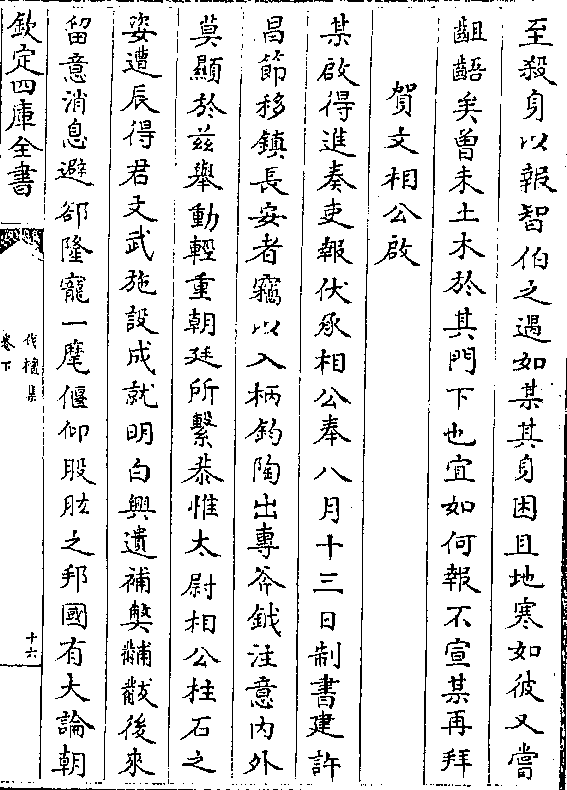 至殺身以報智伯之遇如某其身困且地寒如彼又嘗
齟齬矣曾未土木於其門下也宜如何報不宣某再拜
賀文相公啟
某啟得進奏吏報伏承相公奉八月十三日制書建許
昌節移鎮長安者竊以入柄鈞陶出專斧鉞注意内外
莫顯於兹舉動輕重朝廷所繫恭惟太尉相公柱石之
姿遭辰得君文武施設成就明白興遺補獘黼黻後來
留意消息避郤隆寵一麾偃仰股肱之邦國有大論朝
欽定四庫全書
伐檀集
卷下
十六